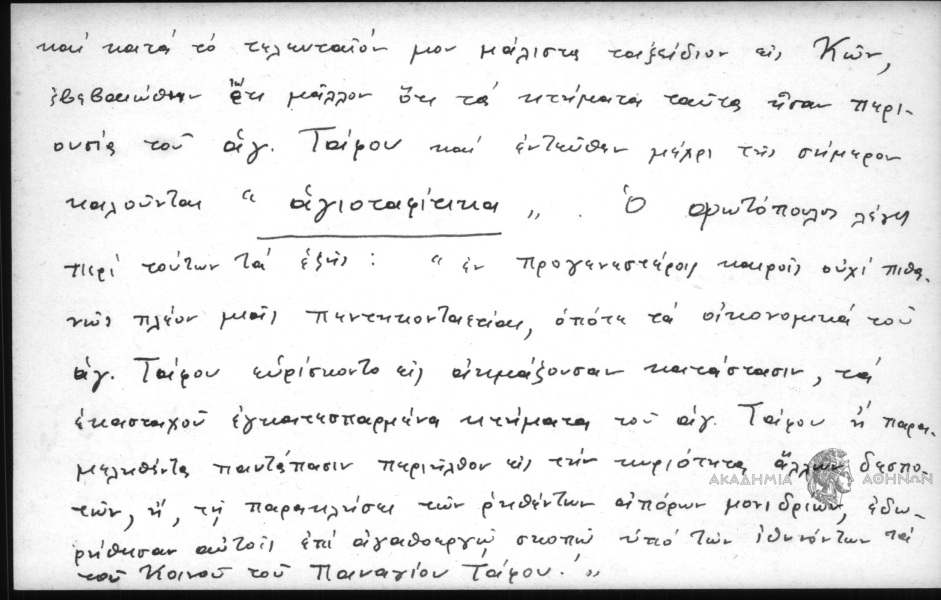 καί κατά τό τελευταῖόν μου μάλιστα ταξείδιον εἰς Κῶν,
ἐβεβαιώθην ἔτι μᾶλλον ὅτι τά κτήματα ταῦτα ἦσαν περι-
ουσία τοῦ ἁγ. Τάφου καί ἐντεῦθεν μέχρι τῆς σήμερον
καλοῦνται “ ἁγιοταφίτικα „ . Ὁ πρωτόπαλος λέγει
περί τούτων τά ἑξῆς : “ ἐν προγενεστέροις καιροῖς οὐχί πιθα-
νῶς πλέον μιᾶς πεντηκονταετίας, ὁπότε τά οἰκονομικά τοῦ
ἁγ. Τάφου εὑρίσκοντο εἰς ἀκμάζουσαν κατάστασιν, τά
ἑκασταχοῦ ἐγκατεσπαρμένα κτήματα τοῦ ἁγ. Τάφου ἤ παρα-
μεληθέντα παντάπασιν περιῆλθον εἰς τήν κυριότητα ἄλλων δεσπο-
τῶν, ἤ, τῇ παρακλήσει τῶν ῥηθέντων ἀπόρων μονιδρίων, ἐδω-
ρήθησαν αὐτοῖς ἐπί ἀγαθοεργῷ σκοπῷ ὑπό τῶν ἰθυνόντων τά
τοῦ Κοινοῦ τοῦ Παναγίου Τάφου. „
ΑΚΑΔΗΜΙΑ ΑΘΗΝΩΝ